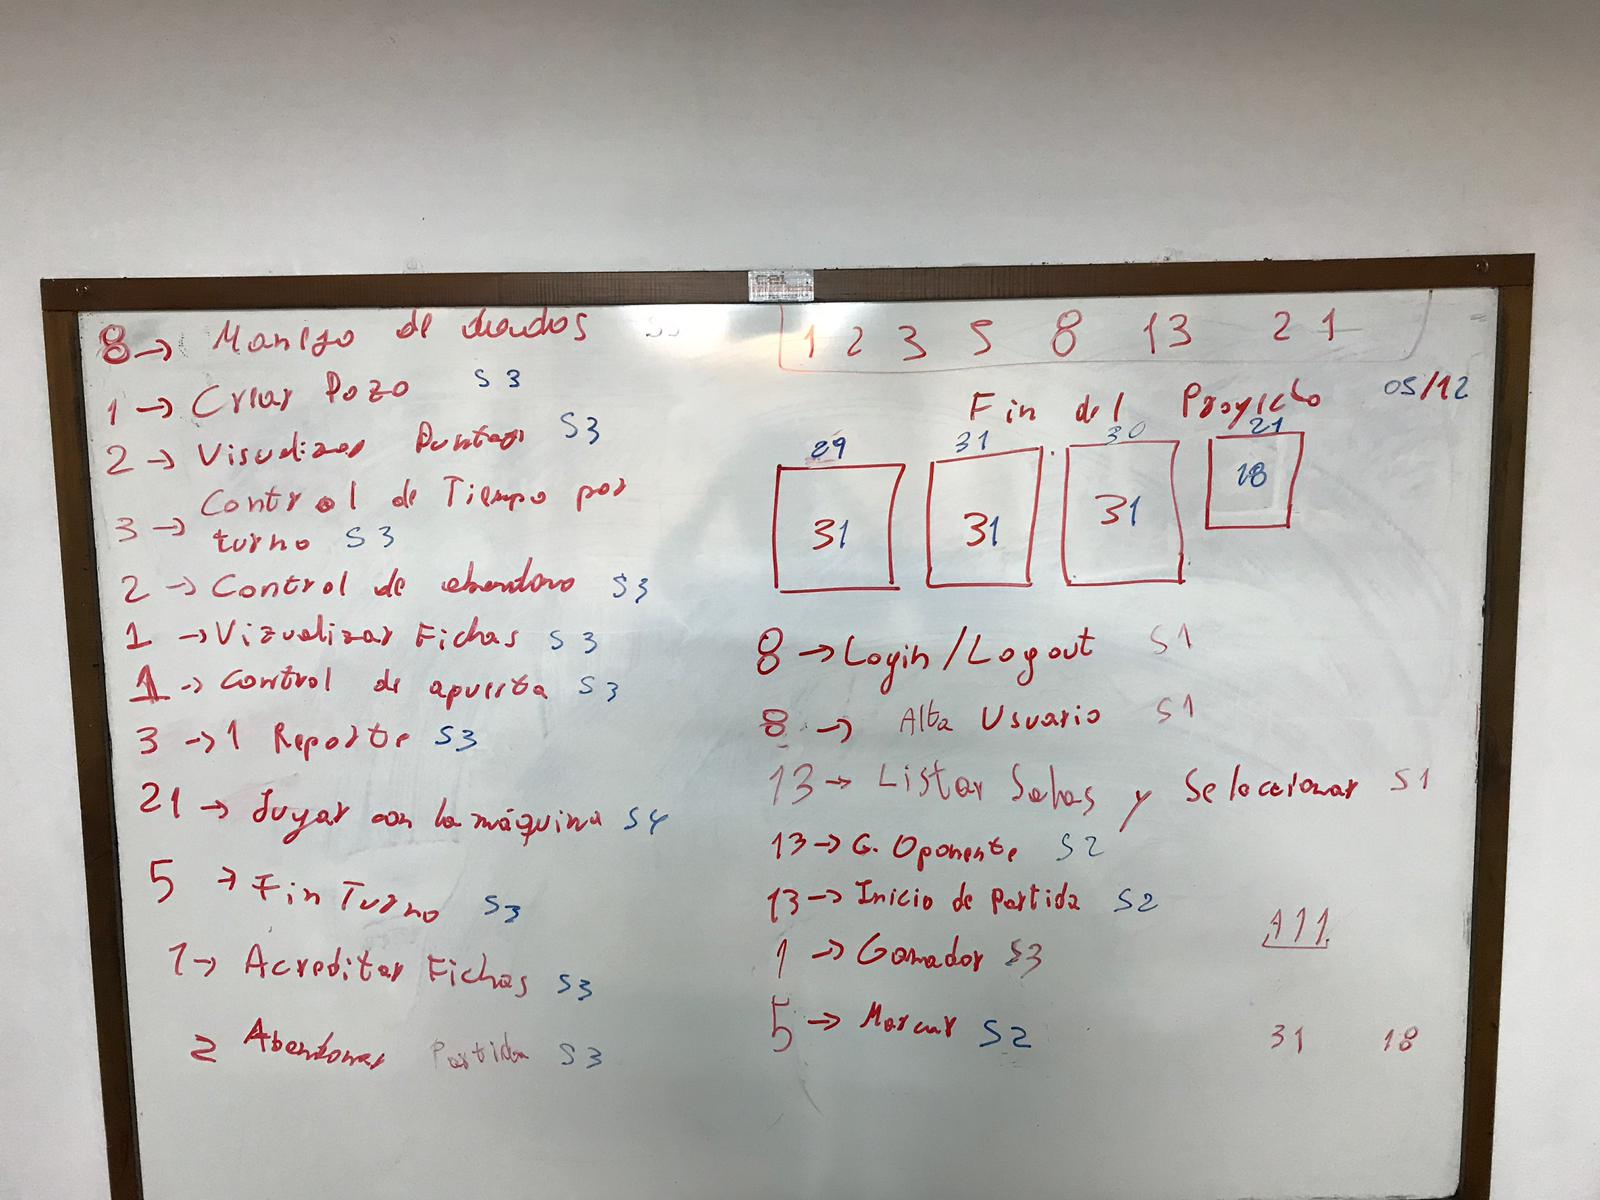 8 → Manejo de dados S3
1 → Crear Pozo S3
2 → Visualizar Puntaje S3
3 → Control de Tiempo por
turno S3
2 → Control de abandono S3
1 → Vizualizar Fichas S3
1 → Control de apuesta S3
3 → 1 Reporte S3
21 → Jugar con la máquina S4
5 → Fin Turno S3
1 → Acreditar Fichas S3
2 Abandonar Partida S3
1 2 3 5 8 13 21
Fin del Proyecto 05/12
29 31 30 21
31 31 31 18
8 → Login/Logout S1
8 → Alta Usuario S1
13 → Listar Salas y Seleccionar S1
13 → G. Oponente S2
13 → Inicio de Partida S2
1 → Ganador S3
5 → Marcar S2
111
31 18